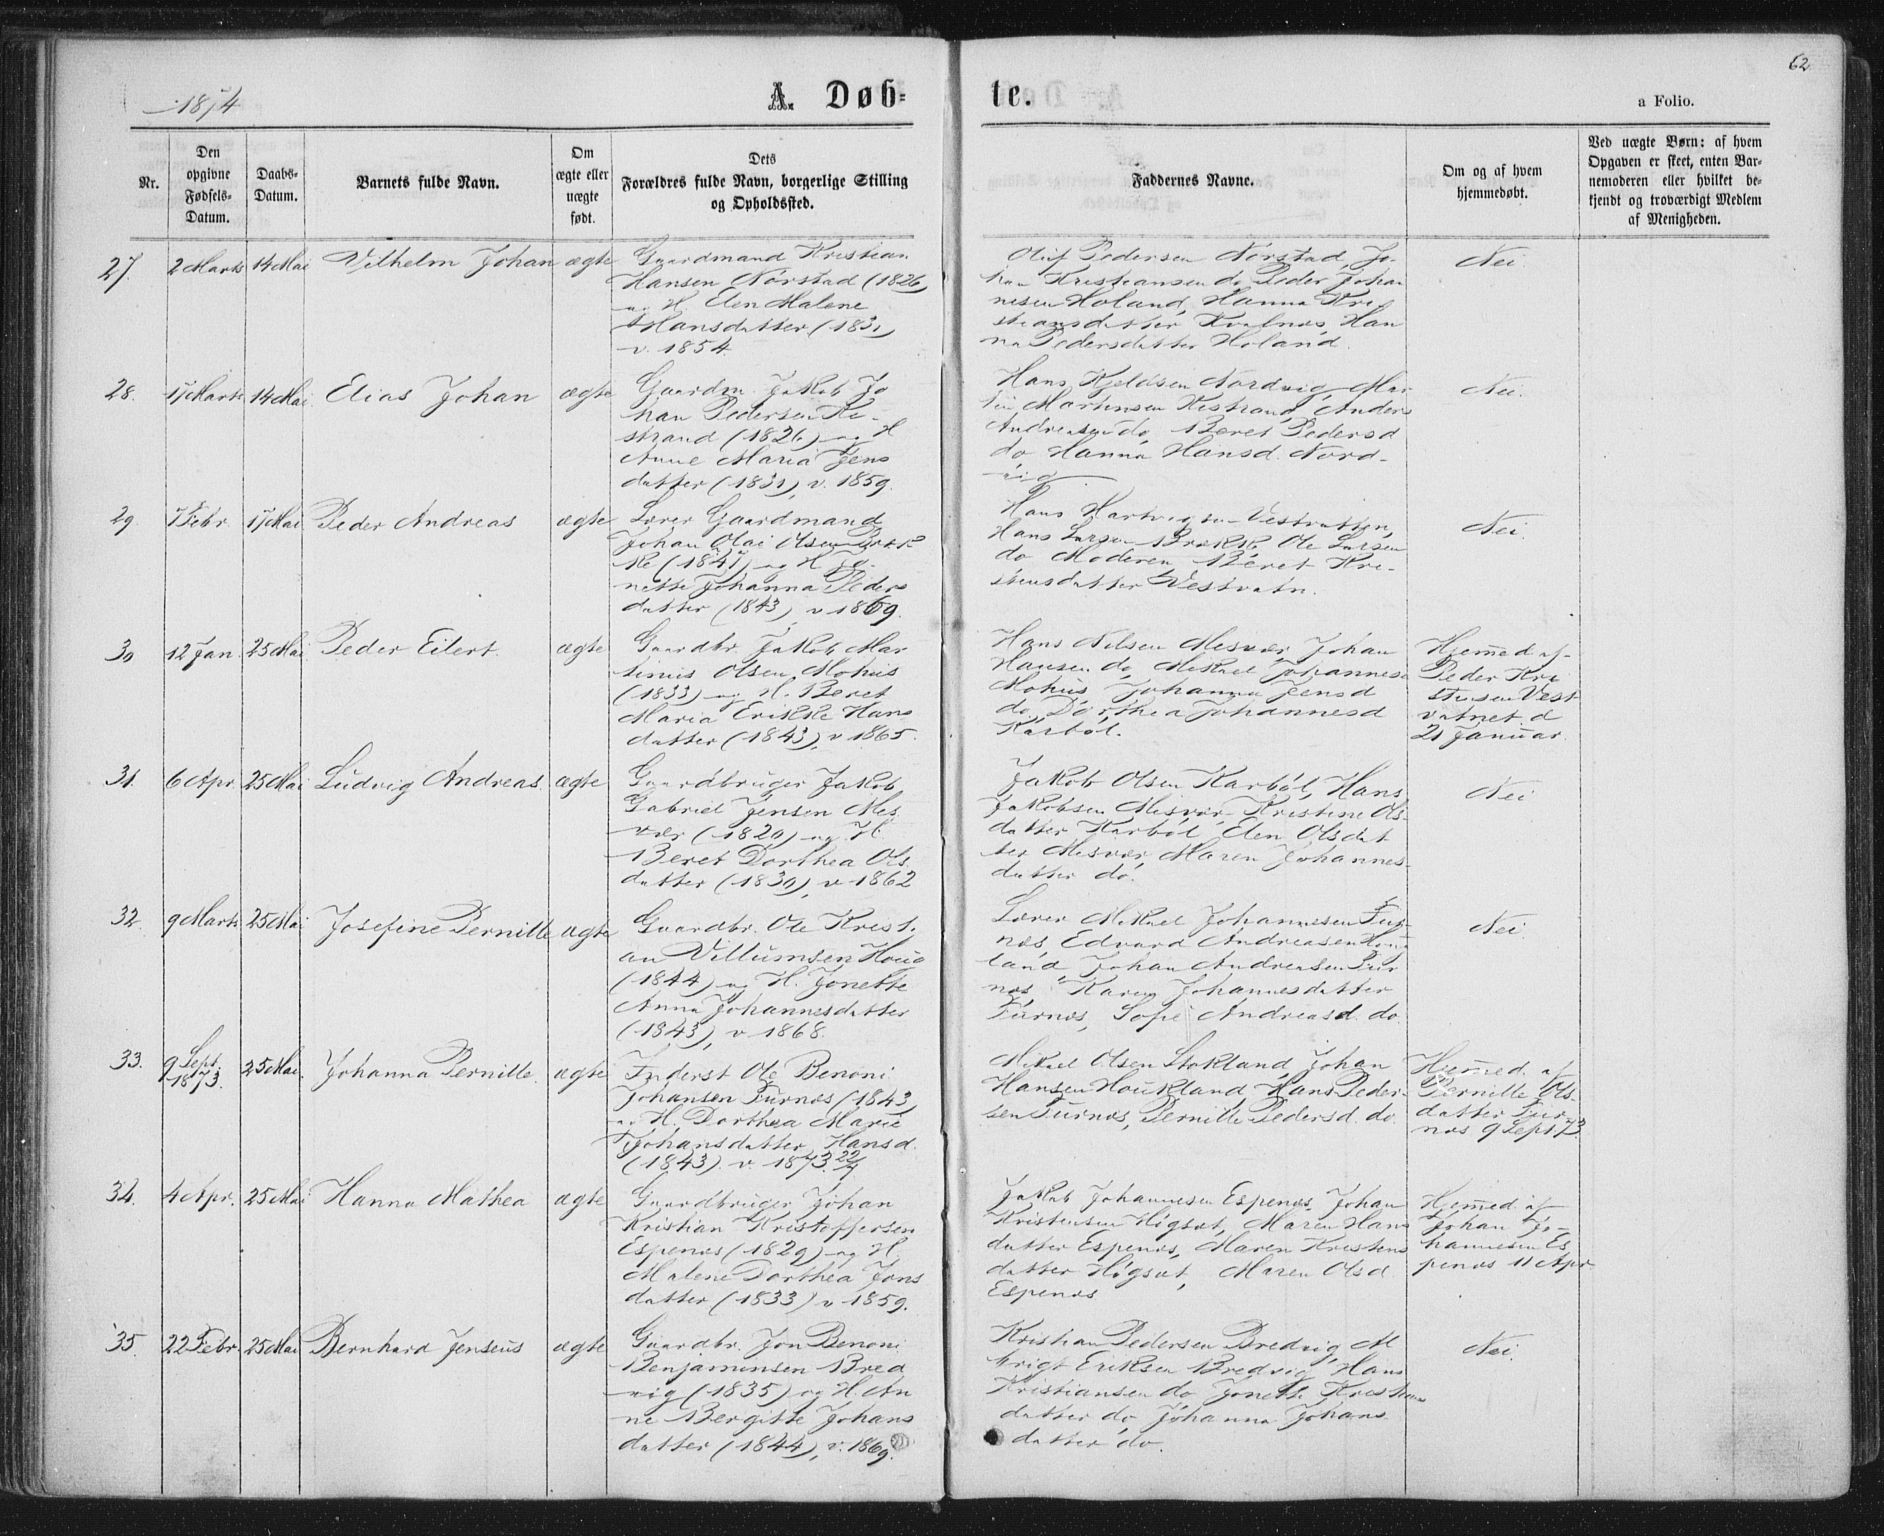 62
1874
A. Døb-
te.
a Folio.
Nr.
Den
opgivne
Fødsels-
Datum.
Daabs-
Datum.
Barnets fulde Navn.
Om
ægte eller
uægte
født.
Dets
Forældres fulde Navn, borgerlige Stilling
og Opholdssted.
Faddernes Navne.
Om og af hvem
hjemmedøbt.
Ved uægte Børn: af hvem
Opgaven er skeet, enten Bar-
nemoderen eller hvilket be-
kjendt og troværdigt Medlem
af Menigheden.
27
2 Marts
14 Mai
Vilhelm Johan
ægte
Gaardmand Kristian
Hansen Nörstad (1826)
og H. Elen Malene
Hansdatter (1831)
v. 1854
Oluf Pedersen Nörstad, Jo-
han Kristiansen do Peder Johan
nesen Holand, Hanna Kri
stiansdatter Kvalnæs, Han
na Pedersdatter Holand.
Nei.
28.
17 Marts
14 Mai
Elias Johan
ægte
Gaardm. Jakob Jo
han Pedersen Re-
strand (1826) og H
Anne Maria Jens
datter (1831), v. 1859.
Hans Kjeldsen Nordvig, Mar
tin Mortensen Restrand, Anders
Andreasen do, Beret Pedersd
do Hanna Hansd. Nord-
vig
Nei.
29.
7 Febr.
17 Mai
Peder Andreas
ægte
Lærer Gaardmand
Johan Olai Olsen Bræk
ke (1841) og H. Jo-
nette Johanna Peders
datter (1843), v 1869.
Hans Hartvigsen Vestvatten,
Hans Larsen Brække, Ole Larsen
do Moderen Beret Kri-
stensdatter Vestvatn.
Nei.
30
12 Jan.
25 Mai
Peder Eilert.
ægte
Gaardbr. Jakob Mar
tinius Olsen Mohus
(1833) og H. Beret
Maria Erikke Hans
datter (1843), v 1865.
Hans Nilsen Mesvær Johan
Hansen do, Mikael Johannese
Mohus Johanna Jensd
do, Dorthea Johannesd
Karböl.
Hjemed af
Peder Kri
stensen Vest
vatnet d
21 Januar.
31.
6 Apr.
25 Mai
Ludvig Andreas.
ægte
Gaardbruger Jakob
Gabriel Jensen Mes
vær (1820) og H.
Beret Dorthea Ols
datter (1830), v 1862
Jakob Olsen Karböl, Hans
Jakobsen Mesvær Kristine Ols-
datter Karböl Elen Olsdat
ter Mesvær Maren Johannes-
datter do.
Nei
32.
9 Marts
25 Mai
Josefine Pernille
ægte
Gaardbr. Ole Krist.
an Villumsen Houg
(1844) og H. Jonette
Anna Johannesdatter
(1843), v 1868.
Lærer Mikael Johannesen Fur-
næs, Edvard Andreasen Hou
land Johan Andreasen Fur
næs Karen Johannesdatter
Furnæs, Sofie Andreasd. do
Nei.
33.
9 Sept.
1873.
25 Mai.
Johanna Pernille.
ægte
Inderst Ole Benoni
Johansen Furnæs (1843)
og H. Dorthea Marie
Johansdatter Hansd.
(1843) v 1873 22/7
Mikael Olsen Stokland, Johan
Hansen Houkland Hans Peder-
sen Furnæs, Pernille Pedersd. do.
Hjemed. af
Pernille Ols-
datter Fur-
næs 9 Sept 73
34.
4 Apr.
25 Mai
Hanna Mathea
ægte
Gaardbruger Johan
Kristian Kristoffersen
Espenæs (1829) og H.
Malene Dorthea Jons
datter (1833) v 1859.
Jakob Johannesen Espenæs, Johan
Kristensen Högsæt, Maren Hans
datter Espenæs, Maren Kristens
datter Högsæt, Maren Olsd
Espenæs
Hjemed af
Johan Jo-
hannesen Es
penæs 11 Apr.
35.
22 Febr.
25 Mai
Bernhard Jenseus
ægte
Gaardbr. Jon Benoni
Benjaminsen Bred
vig (1835) og H. An
ne Bergitte Johans
datter (1844), v. 1869.
Kristian Pedersen Bredvig, M
krigt Eriksen Bredvig, Hans
Kristiansen do Jonette Kristians
datter do, Johanna Johans
datter do.
Nei.